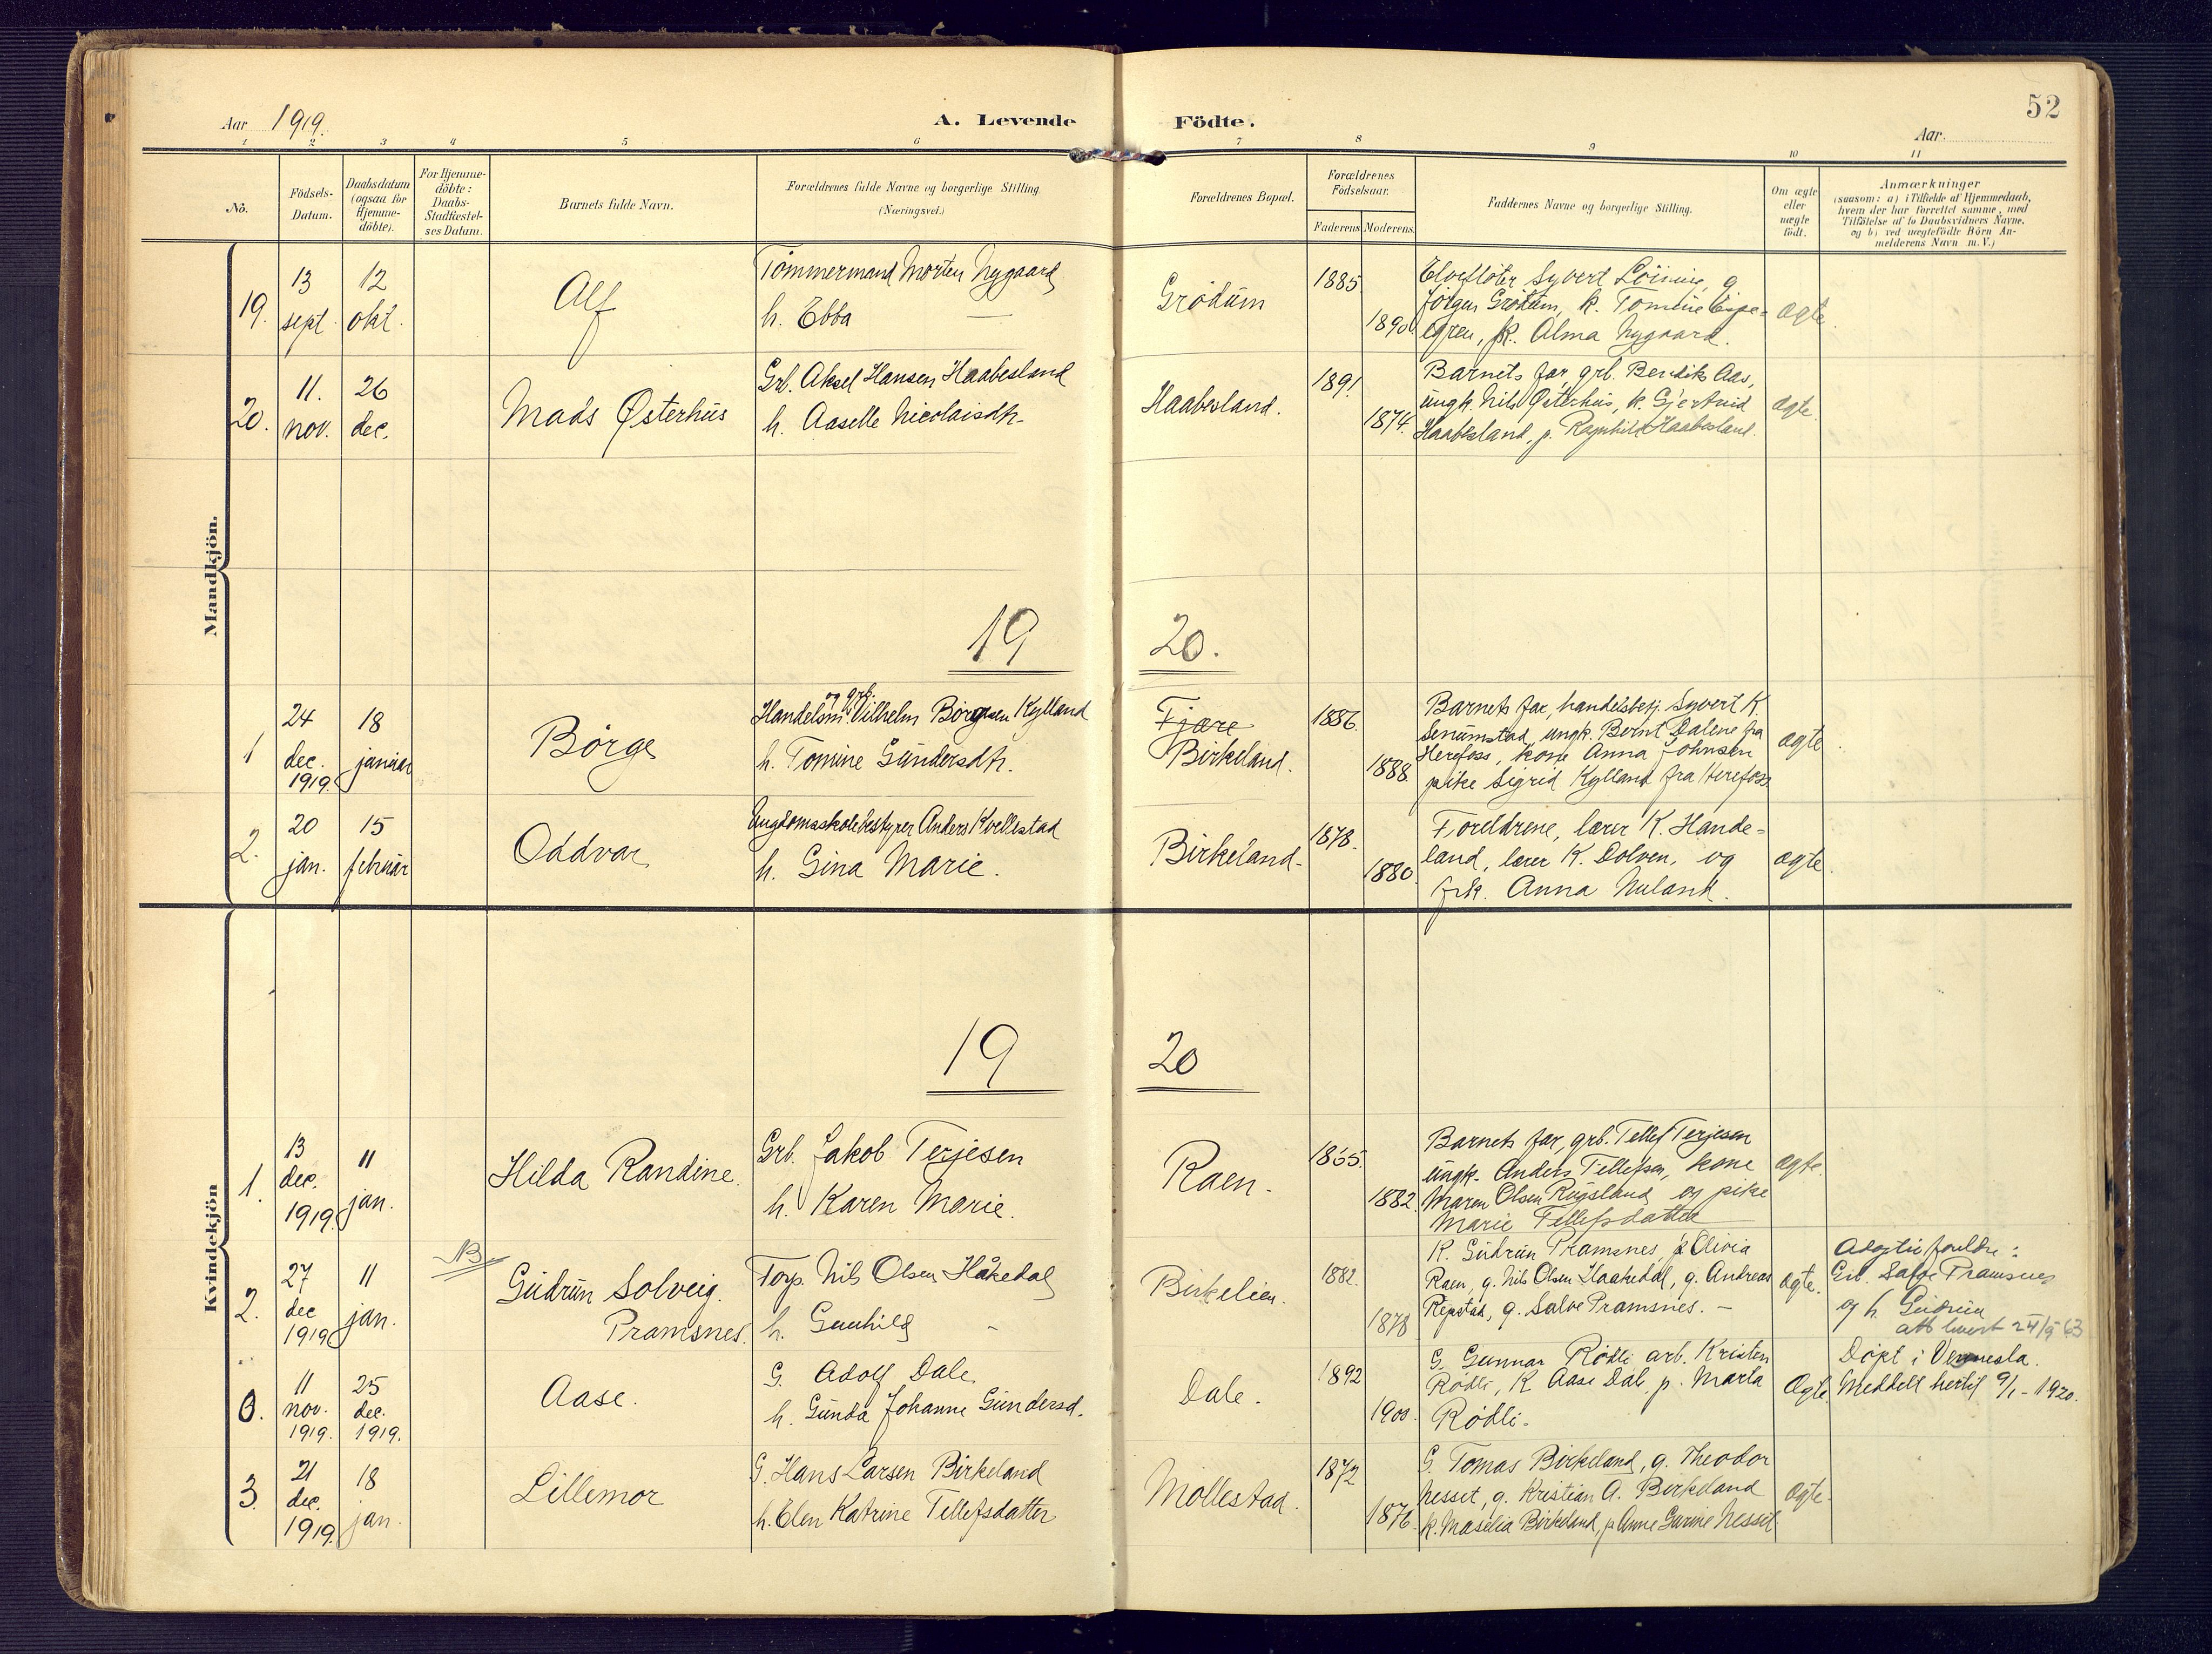 52
Aar 1919.
A. Levende
Födte.
Aar
1 2 3 4 5 6 7 8 9 10 11
No.
Födsels-
Datum.
Daabsdatum
(ogsaa for
Hjemme-
döbte).
For Hjemme-
döbte:
Daabs-
Stadfæstel-
ses Datum.
Barnets fulde Navn.
Forældrenes fulde Navne og borgerlige Stilling
(Næringsvei.)
Forældrenes Bopæl.
Forældrenes
Födselsaar.
Faderens Moderens.
Faddernes Navne og borgerlige Stilling.
Om ægte
eller
uægte
födt.
Anmærkninger
(saasom: a) i Tilfælde af Hjemmedaab,
hvem der har forrettet samme, med
Tilföielse af to Daabsvidners Navne,
og b) ved uægtefödte Börn An-
melderens Navn m. V.)
Mandkjön.
19.
13
sept.
12
okt.
Alf
Tømmermand Morten Nygaard
h. Ebba —
Grødum
1885
1890
Elvefløter Syvert g.
Jørgen Grødum, k. Tomine
Alma Nygaard.
ægte.
20.
11.
nov.
26
dec.
Mads Østerhus
Grb. Aksel Hansen Haabesland
h. Aaselle Nicolaisdtr.
Haabesland.
1891
1874.
Barnets far, grb. Bendik Aas,
ungk. Nils Østerhus, k. Gjertrud
Haabesland, p. Ragnhild Haabesland.
ægte.
19 20.
1
24
dec.
1919.
18
januar
Børge
og grb.
Handelsm. Vilhelm Børgesen Kylland
h. Tomine Gundersdtr.
Fjære
Birkeland.
1886
1888
Barnets far, handelsbetj. Syvert K.
Senumstad, ungk. Bernt Dalene fra
Herefoss, kone Anna Johnsen
pike Sigrid Kylland fra Herefoss.
ægte
2.
20
jan.
15
februar
Oddvar
Ungdomsskolebestyrer Anders Kvellestad
h. Gina Marie.
Birkeland.
1878.
1880
Foreldrene, lærer K. Hande-
land, lærer K. Dolven, og
frk. Anna Huland.
ægte.
Kvindekjön
19 20
1.
13
dec.
1919.
11
jan.
Hilda Randine.
Grb. Jakob Terjesen
h. Karen Marie.
Raen.
1865.
1882.
Barnets far, grb. Tellef Terjesen
ungk. Anders Tellefsen, kone
Maren Olsen Rugsland og pike
Marie Tellefsdatter
ægte.
2.
27
dec
1919
11
jan.
NB
Gudrun Solveig.
Pramsnes.
Torp. Nils Olsen Håkedal
h. Gunhild -
Birkelien.
1882.
1878
K. Gudrun Pramsnes, p. Olivia
Raen, g. Nils Olsen Haakedal, g. Andreas
Repstad, g. Salve Pramsnes. -
ægte.
Adoptivforeldre:
Grb. Salve Pramsnes
og h. Gudrun
att 24/5 63
0.
11
nov.
1919.
25
dec.
1919.
Aase.
G. Adolf Dale
h. Gunda Johanne Gundersd.
Dale.
1892
1900.
G. Gunnar Rødli arb. Kristen
Rødli, K Aase Dale, p. Marta
Rødli.
Ægte.
Døpt i Vennesla.
Meddelt hertil 9/1-1920.
3.
21
dec.
1919.
18
jan.
Lillemor
G. Hans Larsen Birkeland
h. Elen Katrine Tellefsdatter
Mollestad.
1872
1876.
G. Tomas Birkeland, g. Theodor
Nesset, g. Kristian A. Birkeland
k. Maselia Birkeland, p. Anne Gurine Nesset
ægte.